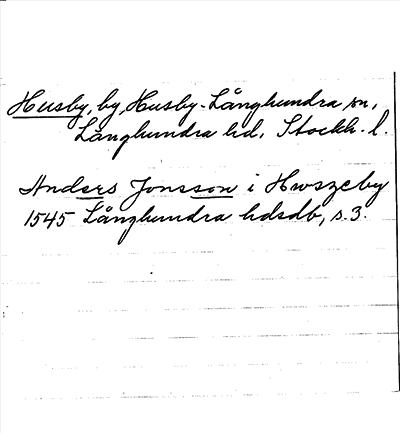 Husby, by, Husby-Långhundra sn,
Långhundra hd, Stockh. l.
Anders Jonsson i Hwszeby
1545 Långhundra hdsdb, s. 3.